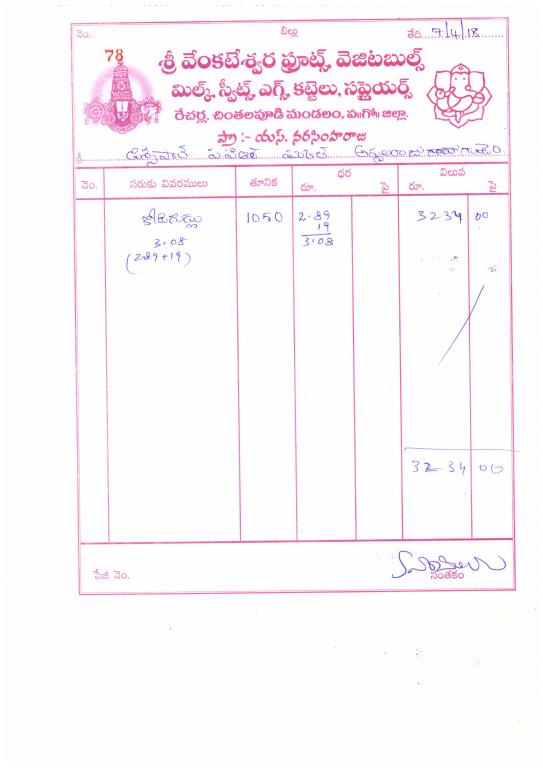 నెం. బిల్లు తేది....7/4/18
78
శ్రీ వేంకటేశ్వర ఫ్రూట్స్, వెజిటబుల్స్
మిల్క్, స్వీట్స్, ఎగ్స్, కట్టెలు, సప్లైయర్స్
రేచర్ల, చింతలపూడి మండలం, ప॥గో॥ జిల్లా.
ప్రొ :- యస్. నరసింహరాజు
శ్రీ
నెం. సరుకు వివరములు తూనిక ధర రూ. పై విలువ రూ. పై
కోడిగుడ్లు 1050 2.89 3234 00
19
3.08 3.08
(2.89+19)
3234 00
పేజి నెం. సంతకం